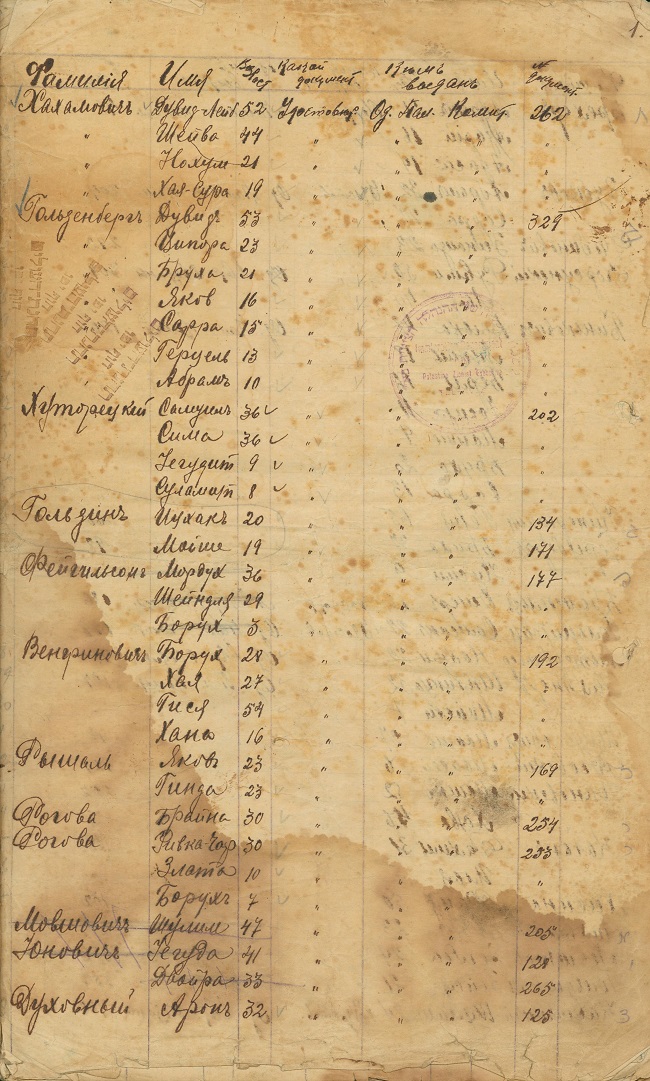 1.
Фамилія Имя Возраст Какой документ Кѣмъ выданъ № документ.
Хахамовичъ Дувид-Лейб 52 Удостовѣр. Од. Пал. Комит. 262
" Шейва 44 " " "
" Нохум 21 " " "
" Хая-Сура 19 " " "
Гольденбергъ Дувидъ 53 " " 329
" Ципора 23 " " "
" Бруха 21 " " "
" Яков 16 " "
" Сарра 15 "
" Герцель 13 "
" Абрамъ 10 "
Хуторецкій Самуилъ 36 " 202
Сима 36 " "
Іегудит 9 " "
Суламит 8 " "
Гольдинъ Ицхакъ 20 " 134
Мойше 19 " 171
Фейгильсонъ Мордух 36 " 177
Шейндля 29 " "
Борух 3 " "
Венфриновичъ Борух 28 " " 192
Хая 27 " " "
Гися 54 " " "
Хана 16 " " "
Рышаль Яковъ 23 " " 169
Гинда 23 " " "
Рогова Брайна 30 " " 254
Рогова Ривка 30 " " 253
Злата 10 " " "
Борухъ 7 " "
Мовшовичъ Шулим 47 " " 205
Юновичъ Іегуда 41 " " 128
Двойра 33 " " 265
Духовный Аронъ 32 " " 125